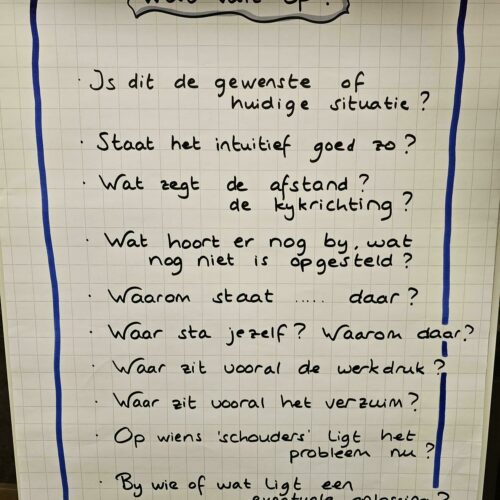 Wat valt op?
· Is dit de gewenste of
huidige situatie?
· Staat het intuitief goed zo?
· Wat zegt de afstand?
de kykrichting?
· Wat hoort er nog by, wat
nog niet is opgesteld?
· Waarom staat ..... daar?
· Waar sta jezelf? Waarom daar?
· Waar zit vooral de werkdruk?
· Waar zit vooral het verzuim?
· Op wiens 'schouders' ligt het
probleem nu?
· By wie of wat ligt een
eventuele oplossing?